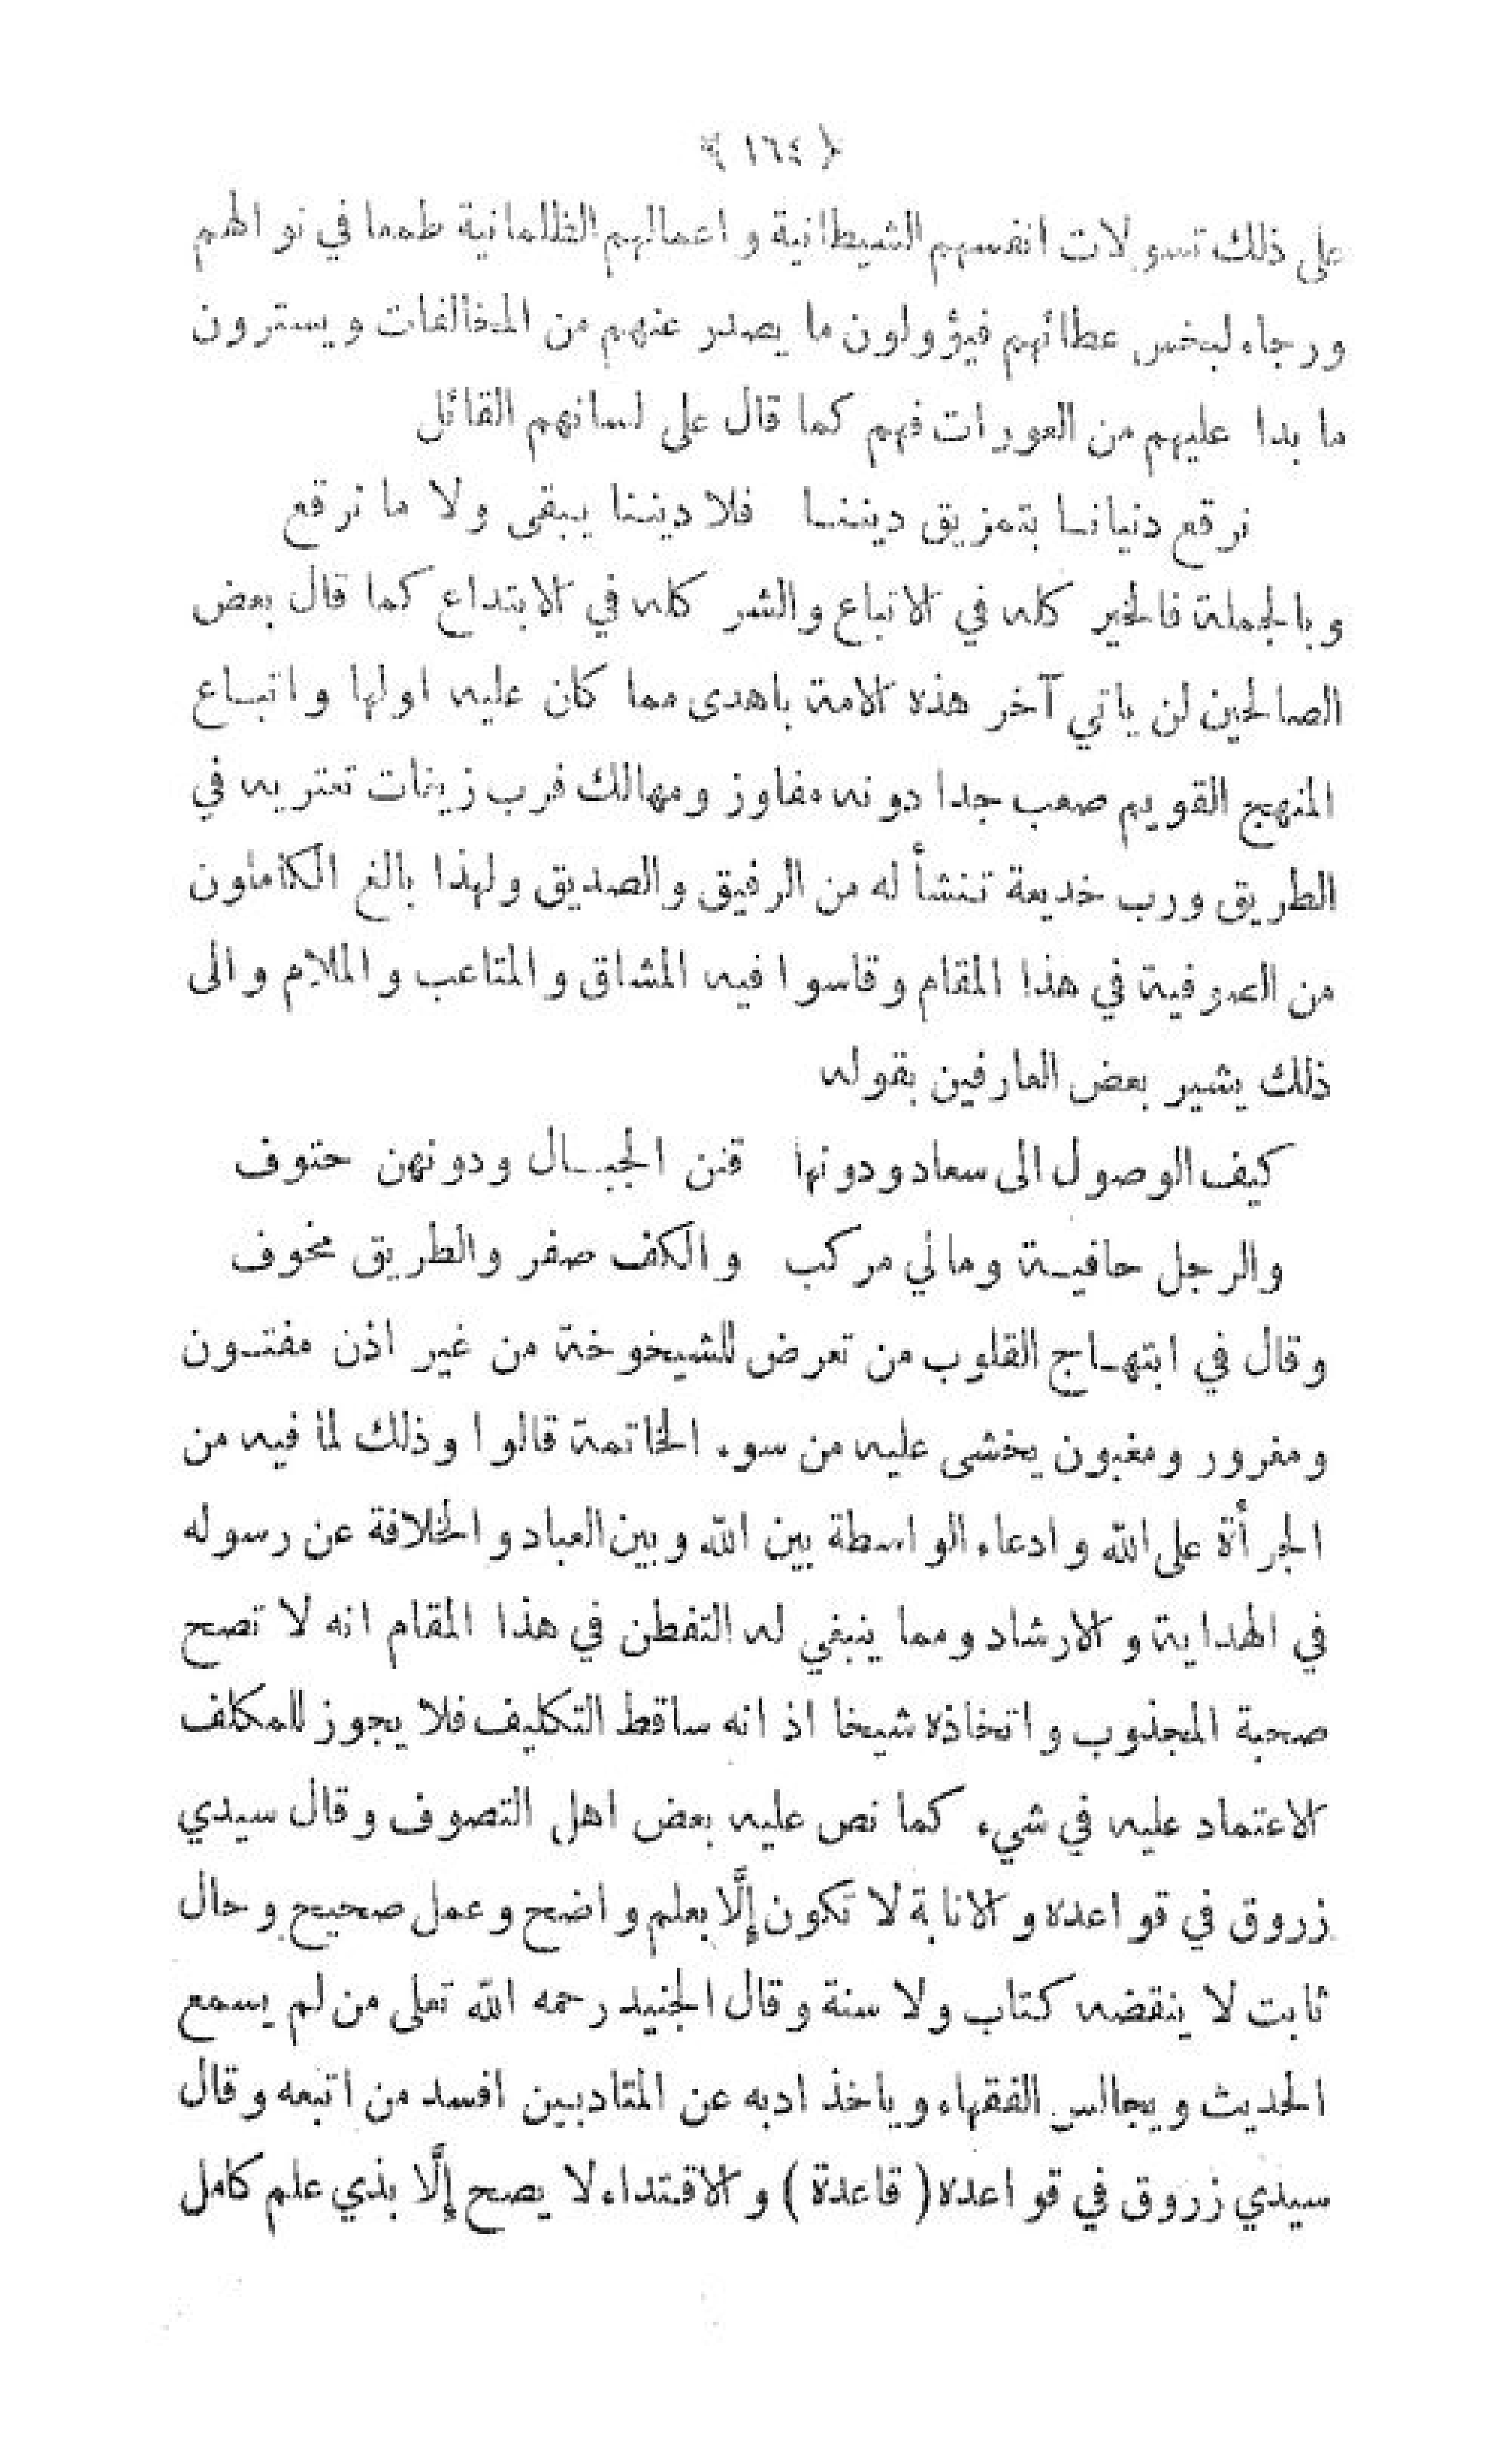 ﴿ ١٦٤ ﴾
على ذلك تسويلات انفسهم الشيطانية واعمالهم الظلمانية طمعا في نوالهم
ورجاء لبخس عطائهم فيؤولون ما يصدر عنهم من المخالفات ويسترون
ما بدا عليهم من العورات فهم كما قال على لسانهم القائل
نرقع دنيانا بتمزيق ديننا فلا ديننا يبقى ولا ما نرقع
وبالجملة فالخير كله في الاتباع والشر كله في الابتداع كما قال بعض
الصالحين لن ياتي آخر هذه الامة باهدى مما كان عليه اولها واتباع
المنهج القويم صعب جدا دونه مفاوز ومهالك فرب زينات تعتريه في
الطريق ورب خديعة تنشأ له من الرفيق والصديق ولهذا بالغ الكاملون
من الصوفية في هذا المقام وقاسوا فيه المشاق والمتاعب والملام والى
ذلك يشير بعض العارفين بقوله
كيف الوصول الى سعاد ودونها قنن الجبال ودونهن حتوف
والرجل حافية ومالي مركب والكف صفر والطريق مخوف
وقال في ابتهاج القلوب من تعرض للشيخوخة من غير اذن مفتون
ومغرور ومغبون يخشى عليه من سوء الخاتمة قالوا وذلك لما فيه من
الجرأة على الله وادعاء الواسطة بين الله وبين العباد والخلافة عن رسوله
في الهداية والارشاد ومما ينبغي له التفطن في هذا المقام انه لا تصح
صحبة المجذوب واتخاذه شيخا اذ انه ساقط التكليف فلا يجوز للمكلف
الاعتماد عليه في شيء كما نص عليه بعض اهل التصوف وقال سيدي
زروق في قواعده والانابة لا تكون إلّا بعلم واضح وعمل صحيح وحال
ثابت لا ينقضه كتاب ولا سنة وقال الجنيد رحمه الله تعلى من لم يسمع
الحديث ويجالس الفقهاء وياخذ ادبه عن المتادبين افسد من اتبعه وقال
سيدي زروق في قواعده (قاعدة) والاقتداء لا يصح إلّا بذي علم كامل